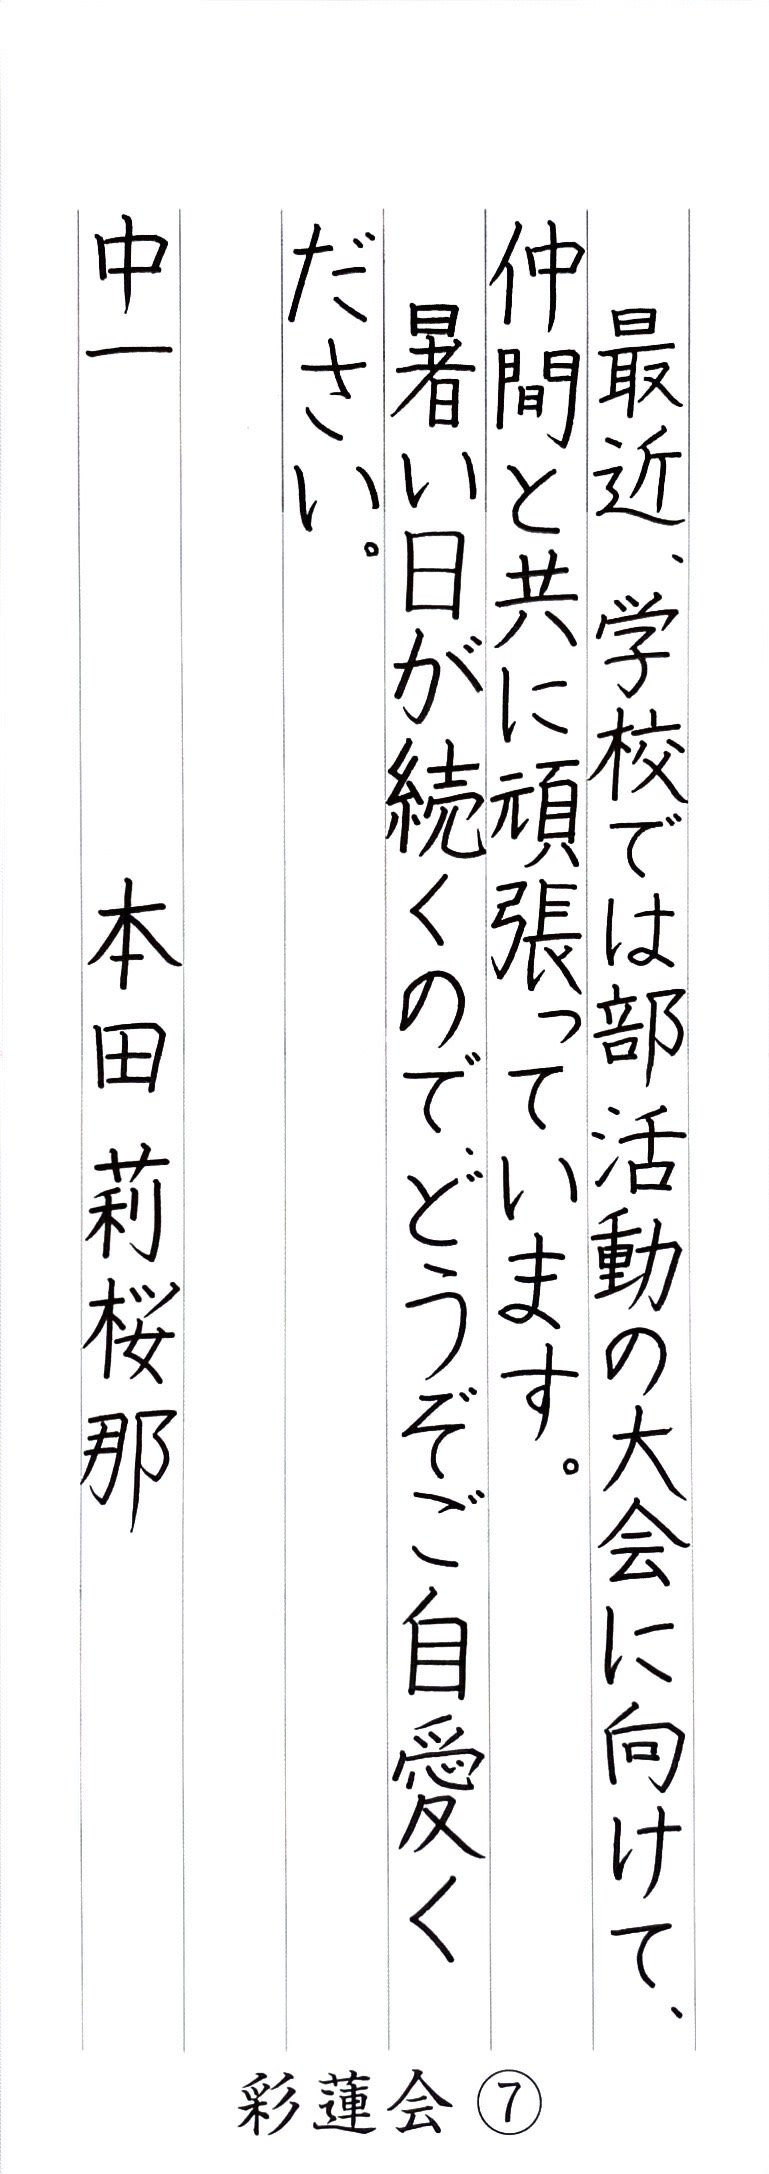 最近、学校では部活動の大会に向けて、
仲間と共に頑張っています。
暑い日が続くので、どうぞご自愛く
ださい。
中一 本田莉桜那
彩蓮会 ⑦